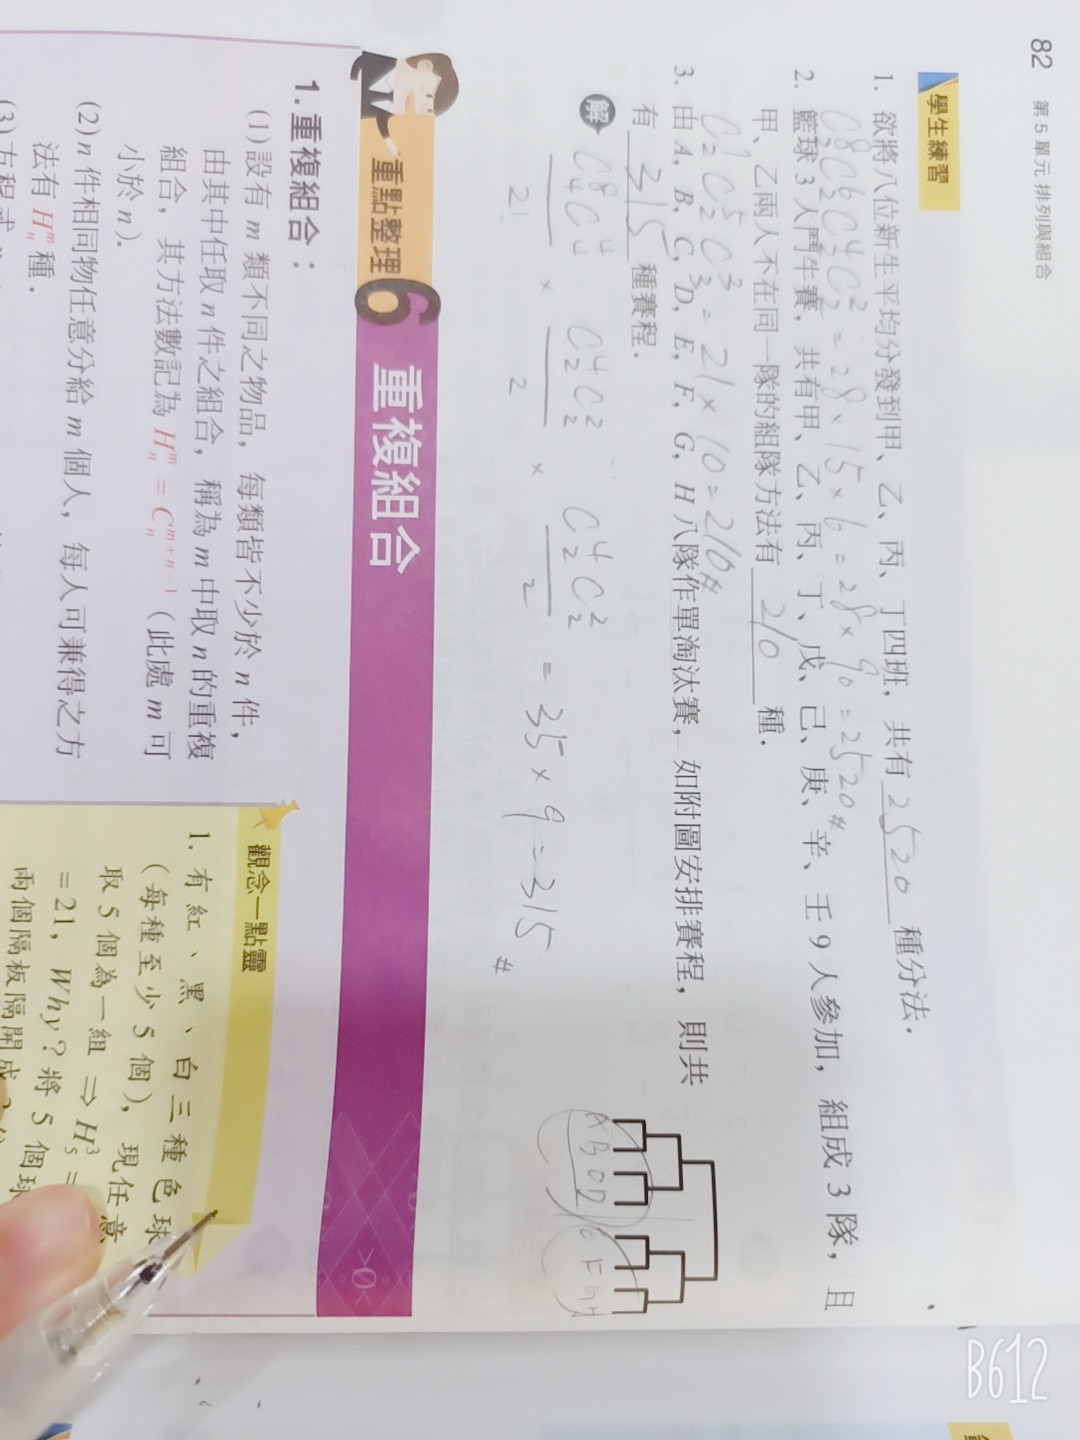 82 第5單元 排列與組合
學生練習
1. 欲將八位新生平均分發到甲、乙、丙、丁四班，共有 2520 種分法．
C⁸₂C⁶₂C⁴₂C²₂ = 28×15×6 = 28×90 = 2520#
2. 籃球3人鬥牛賽，共有甲、乙、丙、丁、戊、己、庚、辛、壬9人參加，組成3隊，且
甲、乙兩人不在同一隊的組隊方法有 210 種．
C⁷₂C⁵₂C³₃ = 21×10=210#
3. 由A，B，C，D，E，F，G，H八隊作單淘汰賽，如附圖安排賽程，則共
有 315 種賽程．
A B C D E F G H
解 C⁸₄C⁴₄/2! × C⁴₂C²₂/2 × C⁴₂C²₂/2 = 35×9=315#
重點整理 6 重複組合
1. 重複組合：
(1)設有m類不同之物品，每類皆不少於n件，
由其中任取n件之組合，稱為m中取n的重複
組合，其方法數記為Hᵐₙ = Cᵐ⁺ⁿ⁻¹ₙ（此處m可
小於n）．
(2)n件相同物任意分給m個人，每人可兼得之方
法有Hᵐₙ種．
(3)方程式
觀念一點靈
1. 有紅、黑、白三種色球
（每種至少5個），現任意
取5個為一組 ⇒ H³₅ =
=21，Why？將5個球
兩個隔板隔開成
B612